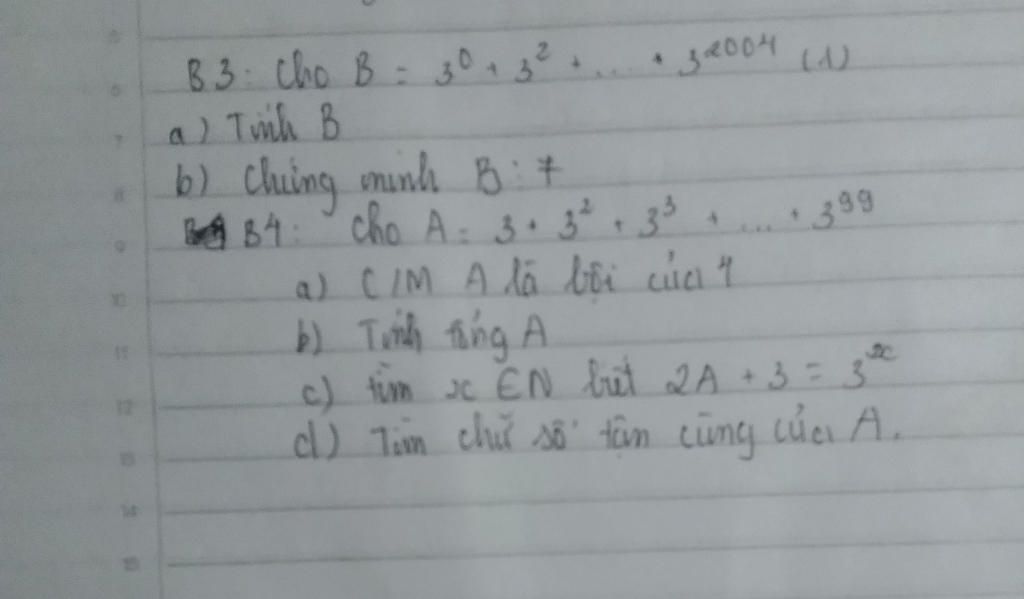 B3: Cho B = 3⁰ + 3² + ... + 3²⁰⁰⁴ (1)
a) Tính B
b) Chứng minh B ⋮ 7
B4: Cho A = 3 + 3² + 3³ + ... + 3⁹⁹
a) C/M A là bội của 4
b) Tính tổng A
c) tìm x ∈ N biết 2A + 3 = 3ˣ
d) Tìm chữ số tận cùng của A.